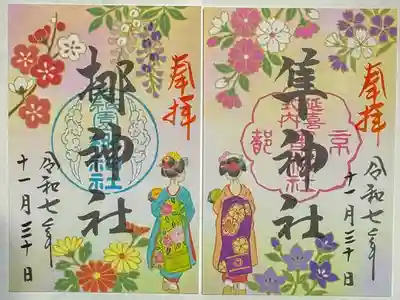 奉拝
梛神社
令和七年
十一月三十日
奉拝
隼神社
延喜
式内
京都
令和七年
十一月三十日